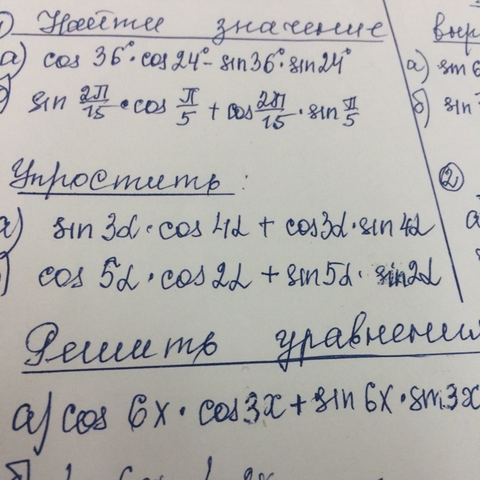 1) Найти значение
а) cos 36°·cos 24° - sin 36°·sin 24°
б) sin 2π/15 · cos π/5 + cos 2π/15 · sin π/5
Упростить:
а) sin 3α · cos 4α + cos 3α · sin 4α
б) cos 5α · cos 2α + sin 5α · sin 2α
Решить уравнения
а) cos 6x · cos 3x + sin 6x · sin 3x
б)
а) sin
б) sin
2